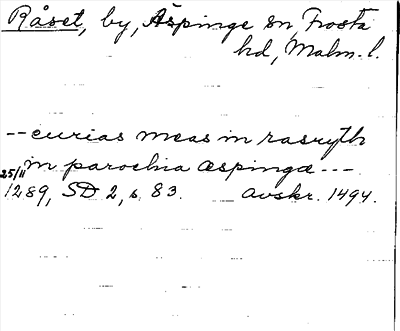 Råset, by, Äspinge sn, Frosta
hd, Malm. l.
-- curias meas in rasryth
in parochia æspinge ---
25/11 1289, SD 2, s. 83. Avskr. 1494.